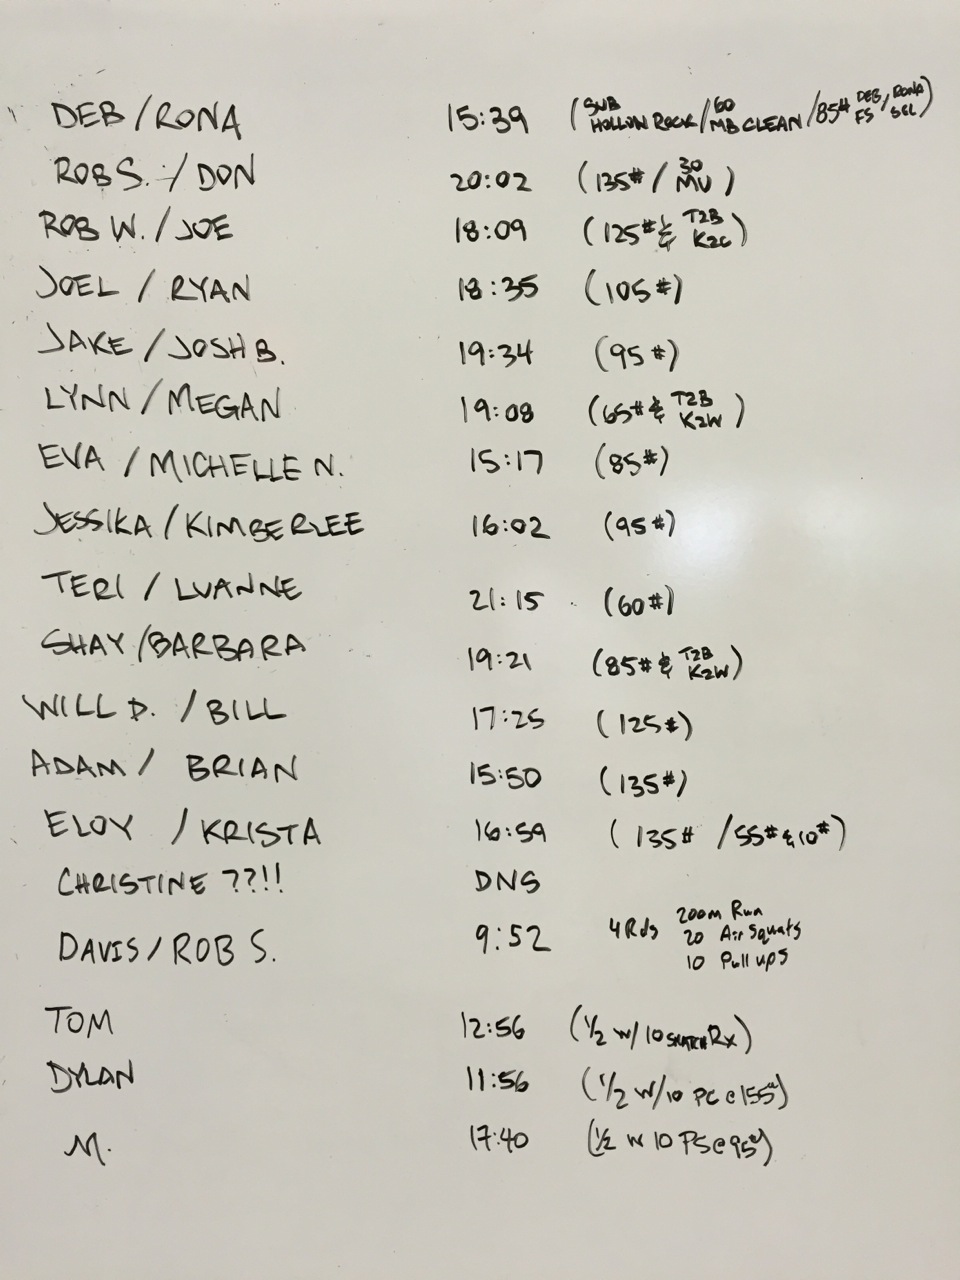 DEB / RONA 15:39 (SUB HOLLOW ROCK / 60 MB CLEAN / 85# DEB FS / RONA
ROB S. / DON 20:02 (135# / 30 MU)
ROB W. / JOE 18:09 (125# & T2B K2C)
JOEL / RYAN 18:35 (105#)
JAKE / JOSH B. 19:34 (95#)
LYNN / MEGAN 19:08 (65# & T2B K2W)
EVA / MICHELLE N. 15:17 (85#)
JESSIKA / KIMBERLEE 16:02 (95#)
TERI / LUANNE 21:15 (60#)
SHAY / BARBARA 19:21 (85# & T2B K2W)
WILL D. / BILL 17:25 (125#)
ADAM / BRIAN 15:50 (135#)
ELOY / KRISTA 16:59 (135# / 55# & 10#)
CHRISTINE ??!! DNS
DAVIS / ROB S. 9:52 4 Rds 200m Run
20 Air Squats
10 Pull ups
TOM 12:56 (1/2 W/ 10 SNATCH Rx)
DYLAN 11:56 (1/2 W/ 10 PC @ 155#)
M. 17:40 (1/2 W 10 PS @ 95#)